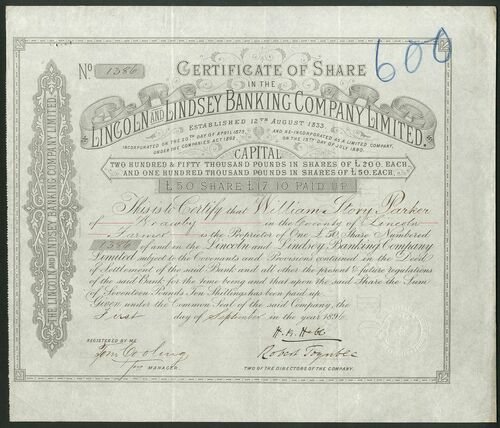 600
No 1386
CERTIFICATE OF SHARE
IN THE
LINCOLN AND LINDSEY BANKING COMPANY LIMITED.
ESTABLISHED 12TH AUGUST 1833.
INCORPORATED ON THE 20TH DAY OF APRIL 1873, UNDER THE COMPANIES ACT 1862
AND RE-INCORPORATED AS A LIMITED COMPANY, ON THE 15TH DAY OF JULY 1880.
CAPITAL
TWO HUNDRED & FIFTY THOUSAND POUNDS IN SHARES OF £200. EACH,
AND ONE HUNDRED THOUSAND POUNDS IN SHARES OF £50. EACH,
£50 SHARE £17.10 PAID UP
This is to Certify that William Story Parker
of in the County of Lincoln
Farmer is the Proprietor of One £50 Share Numbered
1386 of and in the Lincoln and Lindsey Banking Company
Limited subject to the Covenants and Provisions contained in the Deed
of Settlement of the said Bank and all other the present & future regulations
of the said Bank for the time being and that upon the said Share the Sum
of Seventeen Pounds Ten Shillings has been paid up.
Given under the Common Seal of the said Company, the
First day of September in the year 1896
REGISTERED BY ME
Tom Cooling
for MANAGER.
Robert Toynbee
TWO OF THE DIRECTORS OF THE COMPANY.
THE LINCOLN AND LINDSEY BANKING COMPANY LIMITED.